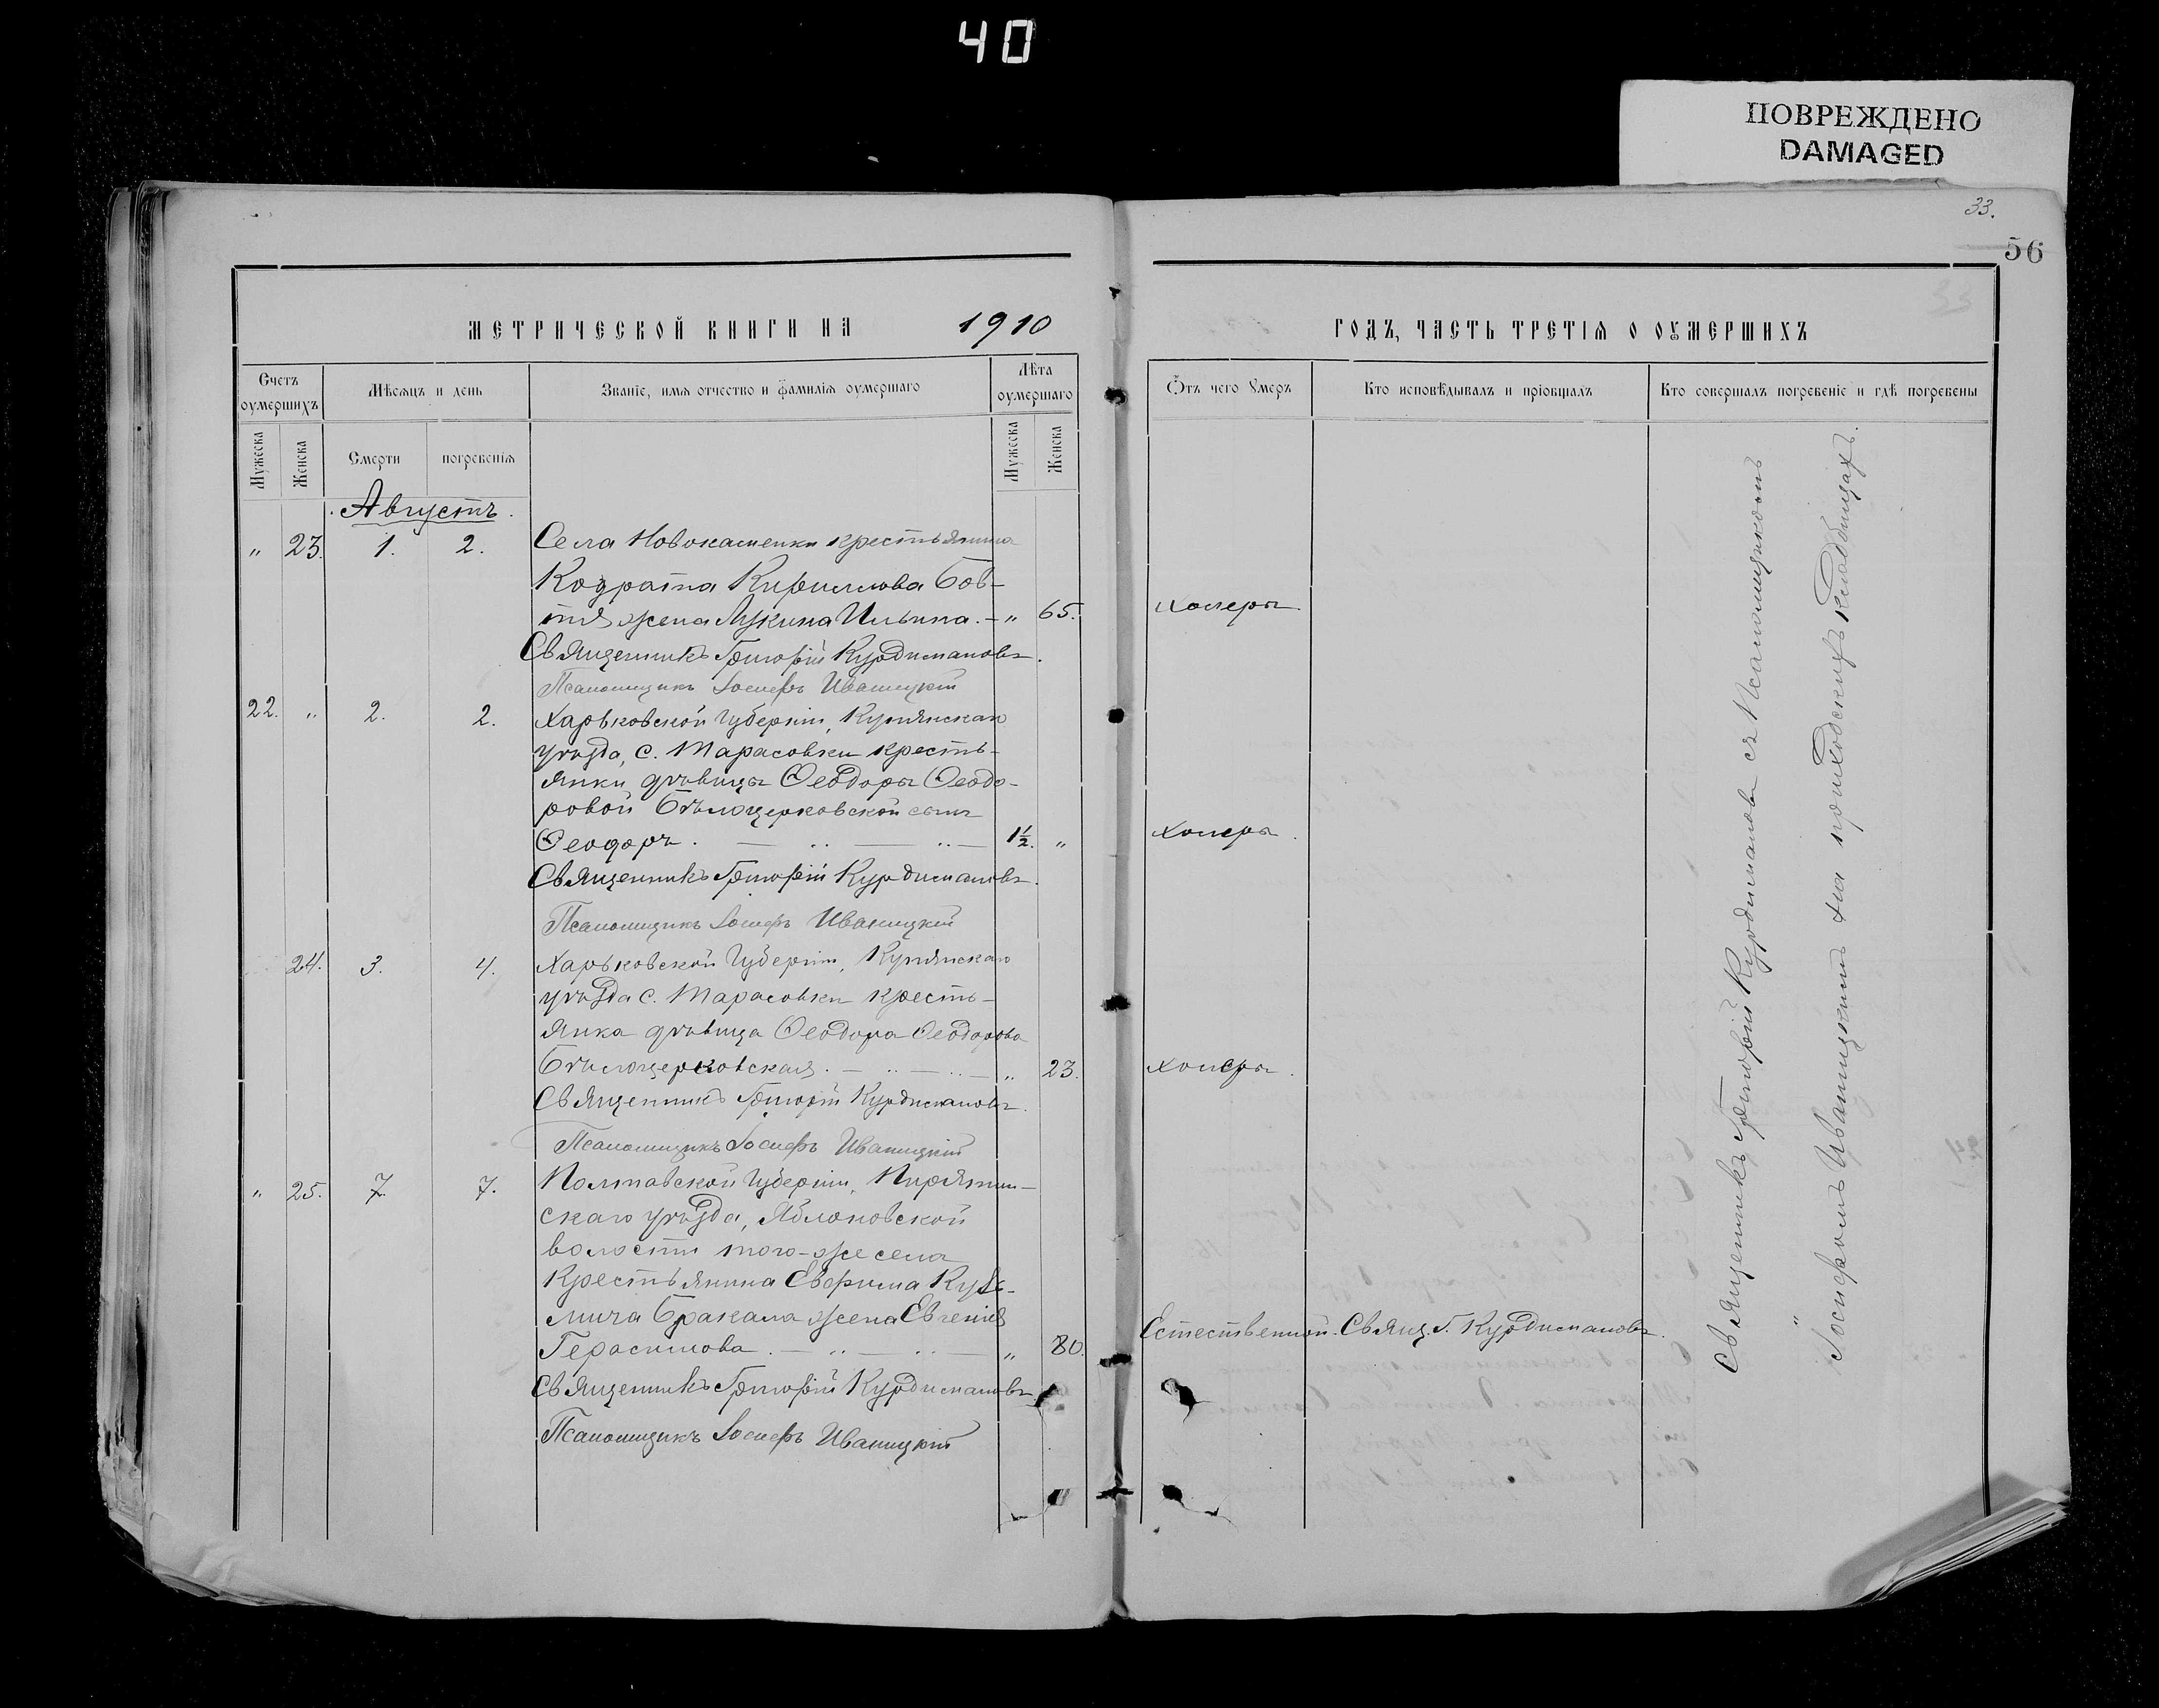 40
ПОВРЕЖДЕНО
DAMAGED
33.
56
МЕТРИЧЕСКОЙ КНИГИ НА 1910
ГОДЪ, ЧАСТЬ ТРЕТІЯ О ОУМЕРШИХЪ
Счетъ оумершихъ
Мѣсяцъ и день
Званіе, имя отчество и фамилія оумершаго
Лѣта оумершаго
Отъ чего Умеръ
Кто исповѣдывалъ и пріобщалъ
Кто совершалъ погребеніе и гдѣ погребены
Мужеска
Женска
Смерти
погребенія
Мужеска
Женска
Августъ.
" 23. 1. 2. Села Новокаменки крестьянина
Кодрата Кириллова Бов-
тя жена Лукина Ильина. - " 65. холеры.
Священникъ Григорій Курдимановъ.
Псаломщикъ Іосифъ Иваницкій
22. " 2. 2. Харьковской Губерніи, Купянскаго
уѣзда, с. Тарасовки кресть-
янки дѣвицы Ѳеодоры Ѳеодо-
ровой Бѣлоцерковской сынъ
Ѳеодоръ. 1½. " холеры.
Священникъ Григорій Курдимановъ.
Псаломщикъ Іосифъ Иваницкій
24. 3. 4. Харьковской Губерніи, Купянскаго
уѣзда с. Тарасовки кресть-
янка дѣвица Ѳеодора Ѳеодорова
Бѣлоцерковская. " 23. холеры.
Священникъ Григорій Курдимановъ.
Псаломщикъ Іосифъ Иваницкій
" 25. 7. 7. Полтавской Губерніи, Пирятин-
скаго уѣзда, Яблоновской
волости того-же села
Крестьянина Евфима Кузь-
мича Бракала жена Евгенія
Герасимова. " 80. Естественной. Свящ. Г. Курдимановъ.
Священникъ Григорій Курдимановъ
Псаломщикъ Іосифъ Иваницкій
Священникъ Григорій Курдимановъ съ Псаломщикомъ
" Іосифомъ Иваницкимъ на приходскихъ кладбищахъ.